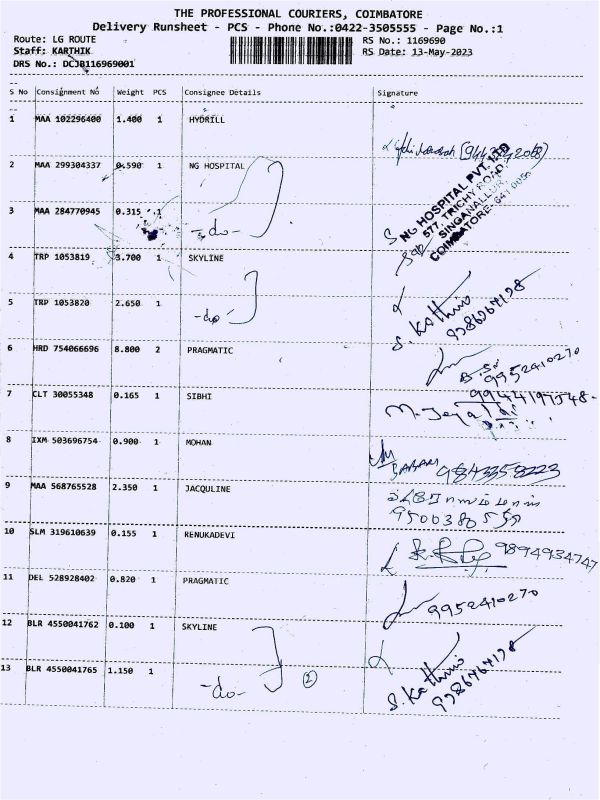 THE PROFESSIONAL COURIERS, COIMBATORE
Delivery Runsheet - PCS - Phone No.:0422-3505555 - Page No.:1
Route: LG ROUTE
RS No.: 1169690
Staff: KARTHIK
RS Date: 13-May-2023
DRS No.: DCJB116969001
S No Consignment No Weight PCS Consignee Details Signature
1 MAA 102296400 1.400 1 HYDRILL
2 MAA 299304337 0.590 1 NG HOSPITAL
NG HOSPITAL PVT. LTD
577, TRICHY ROAD,
SINGANALLUR,
COIMBATORE-641 005.
3 MAA 284770945 0.315 1 -do-
4 TRP 1053819 3.700 1 SKYLINE
5 TRP 1053820 2.650 1 -do-
S. Kathiro
6 HRD 754066696 8.800 2 PRAGMATIC
9952410270
7 CLT 30055348 0.165 1 SIBHI
9944197548-
8 IXM 503696754 0.900 1 MOHAN
9843358223
9 MAA 568765528 2.350 1 JACQULINE
10 SLM 319610639 0.155 1 RENUKADEVI
9894934747
11 DEL 528928402 0.820 1 PRAGMATIC
9952410270
12 BLR 4550041762 0.100 1 SKYLINE
13 BLR 4550041765 1.150 1 -do- 2
S. Kathiro